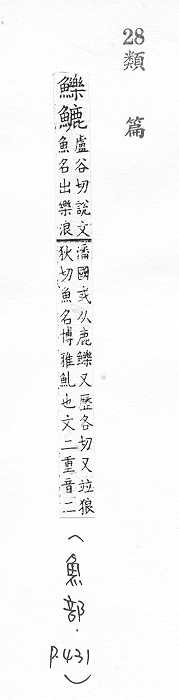 28
類篇
鱳
盧谷切說文
魚名出樂浪
潘國或从鹿鱳又歷各切又竝狼
狄切魚名博雅也文二重音二
(魚部.
P.431)